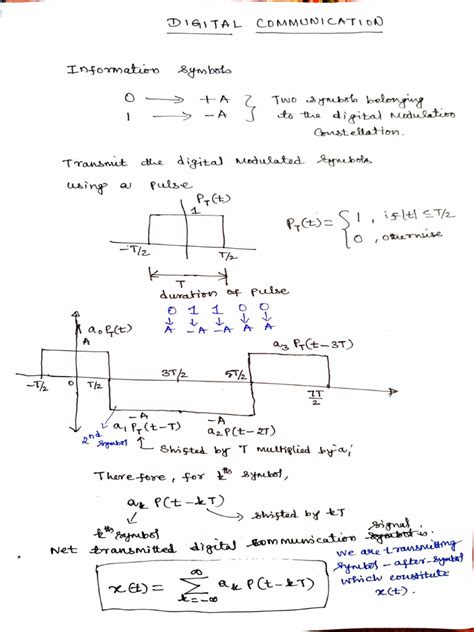 DIGITAL COMMUNICATION
Information Symbols
0 → +A } Two symbols belonging
1 → -A to the digital Modulation
Constellation.
Transmit the digital Modulated Symbols
using a pulse
P_T(t)
1
P_T(t) = { 1, if |t| ≤ T/2
0, otherwise
-T/2 T/2
T
duration of pulse
0 1 1 0 0
↓ ↓ ↓ ↓ ↓
A -A -A A A
a₀ P_T(t)
A
a₃ P_T(t-3T)
-T/2 0 T/2 3T/2 5T/2 7T/2
-A -A
2nd symbol
a₁ P_T(t-T) a₂ P(t-2T)
Shifted by T multiplied by a₁
Therefore, for kth symbol,
a_k P(t-kT)
→ shifted by kT
kth symbol
Net transmitted digital communication signal is:
x(t) = Σ_{k=-∞}^{∞} a_k P(t-kT)
we are transmitting
symbol-after-symbol
which constitute
x(t).